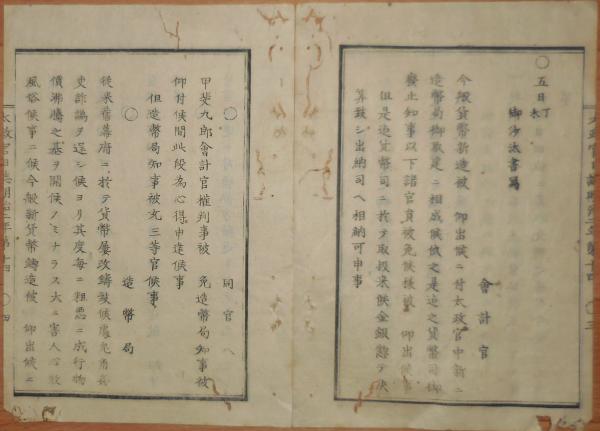 〇五日丁未
御沙汰書寫
會計官
今般貨幣新造被 仰出候ニ付太政官中新ニ
造幣局御取建ニ相成候依之是迄之貨幣司御
廢止知事以下諸官員被免候樣被 仰出候事
但是迄貨幣司ニ於テ取扱来候金銀總テ決
算致シ出納司ヘ相納可申事
〇
同官ヘ
甲斐九郎會計官權判事被 免造幣局知事被
仰付候間此段為心得申達候事
但造幣局知事被允三等官候事
〇
造幣局
從来舊幕府ニ於テ貨幣屡改鋳致候處
吏詐譌ヲ逞シ候ヨリ其度每ニ粗悪ニ成行物
價沸騰之基ヲ開候ノミナラス大ニ害人心敗
風俗候事ニ候今般新貨幣鋳造被 仰出候ニ
太政官日誌明治二年第十四
〇三
太政官日誌明治二年第十四
〇四